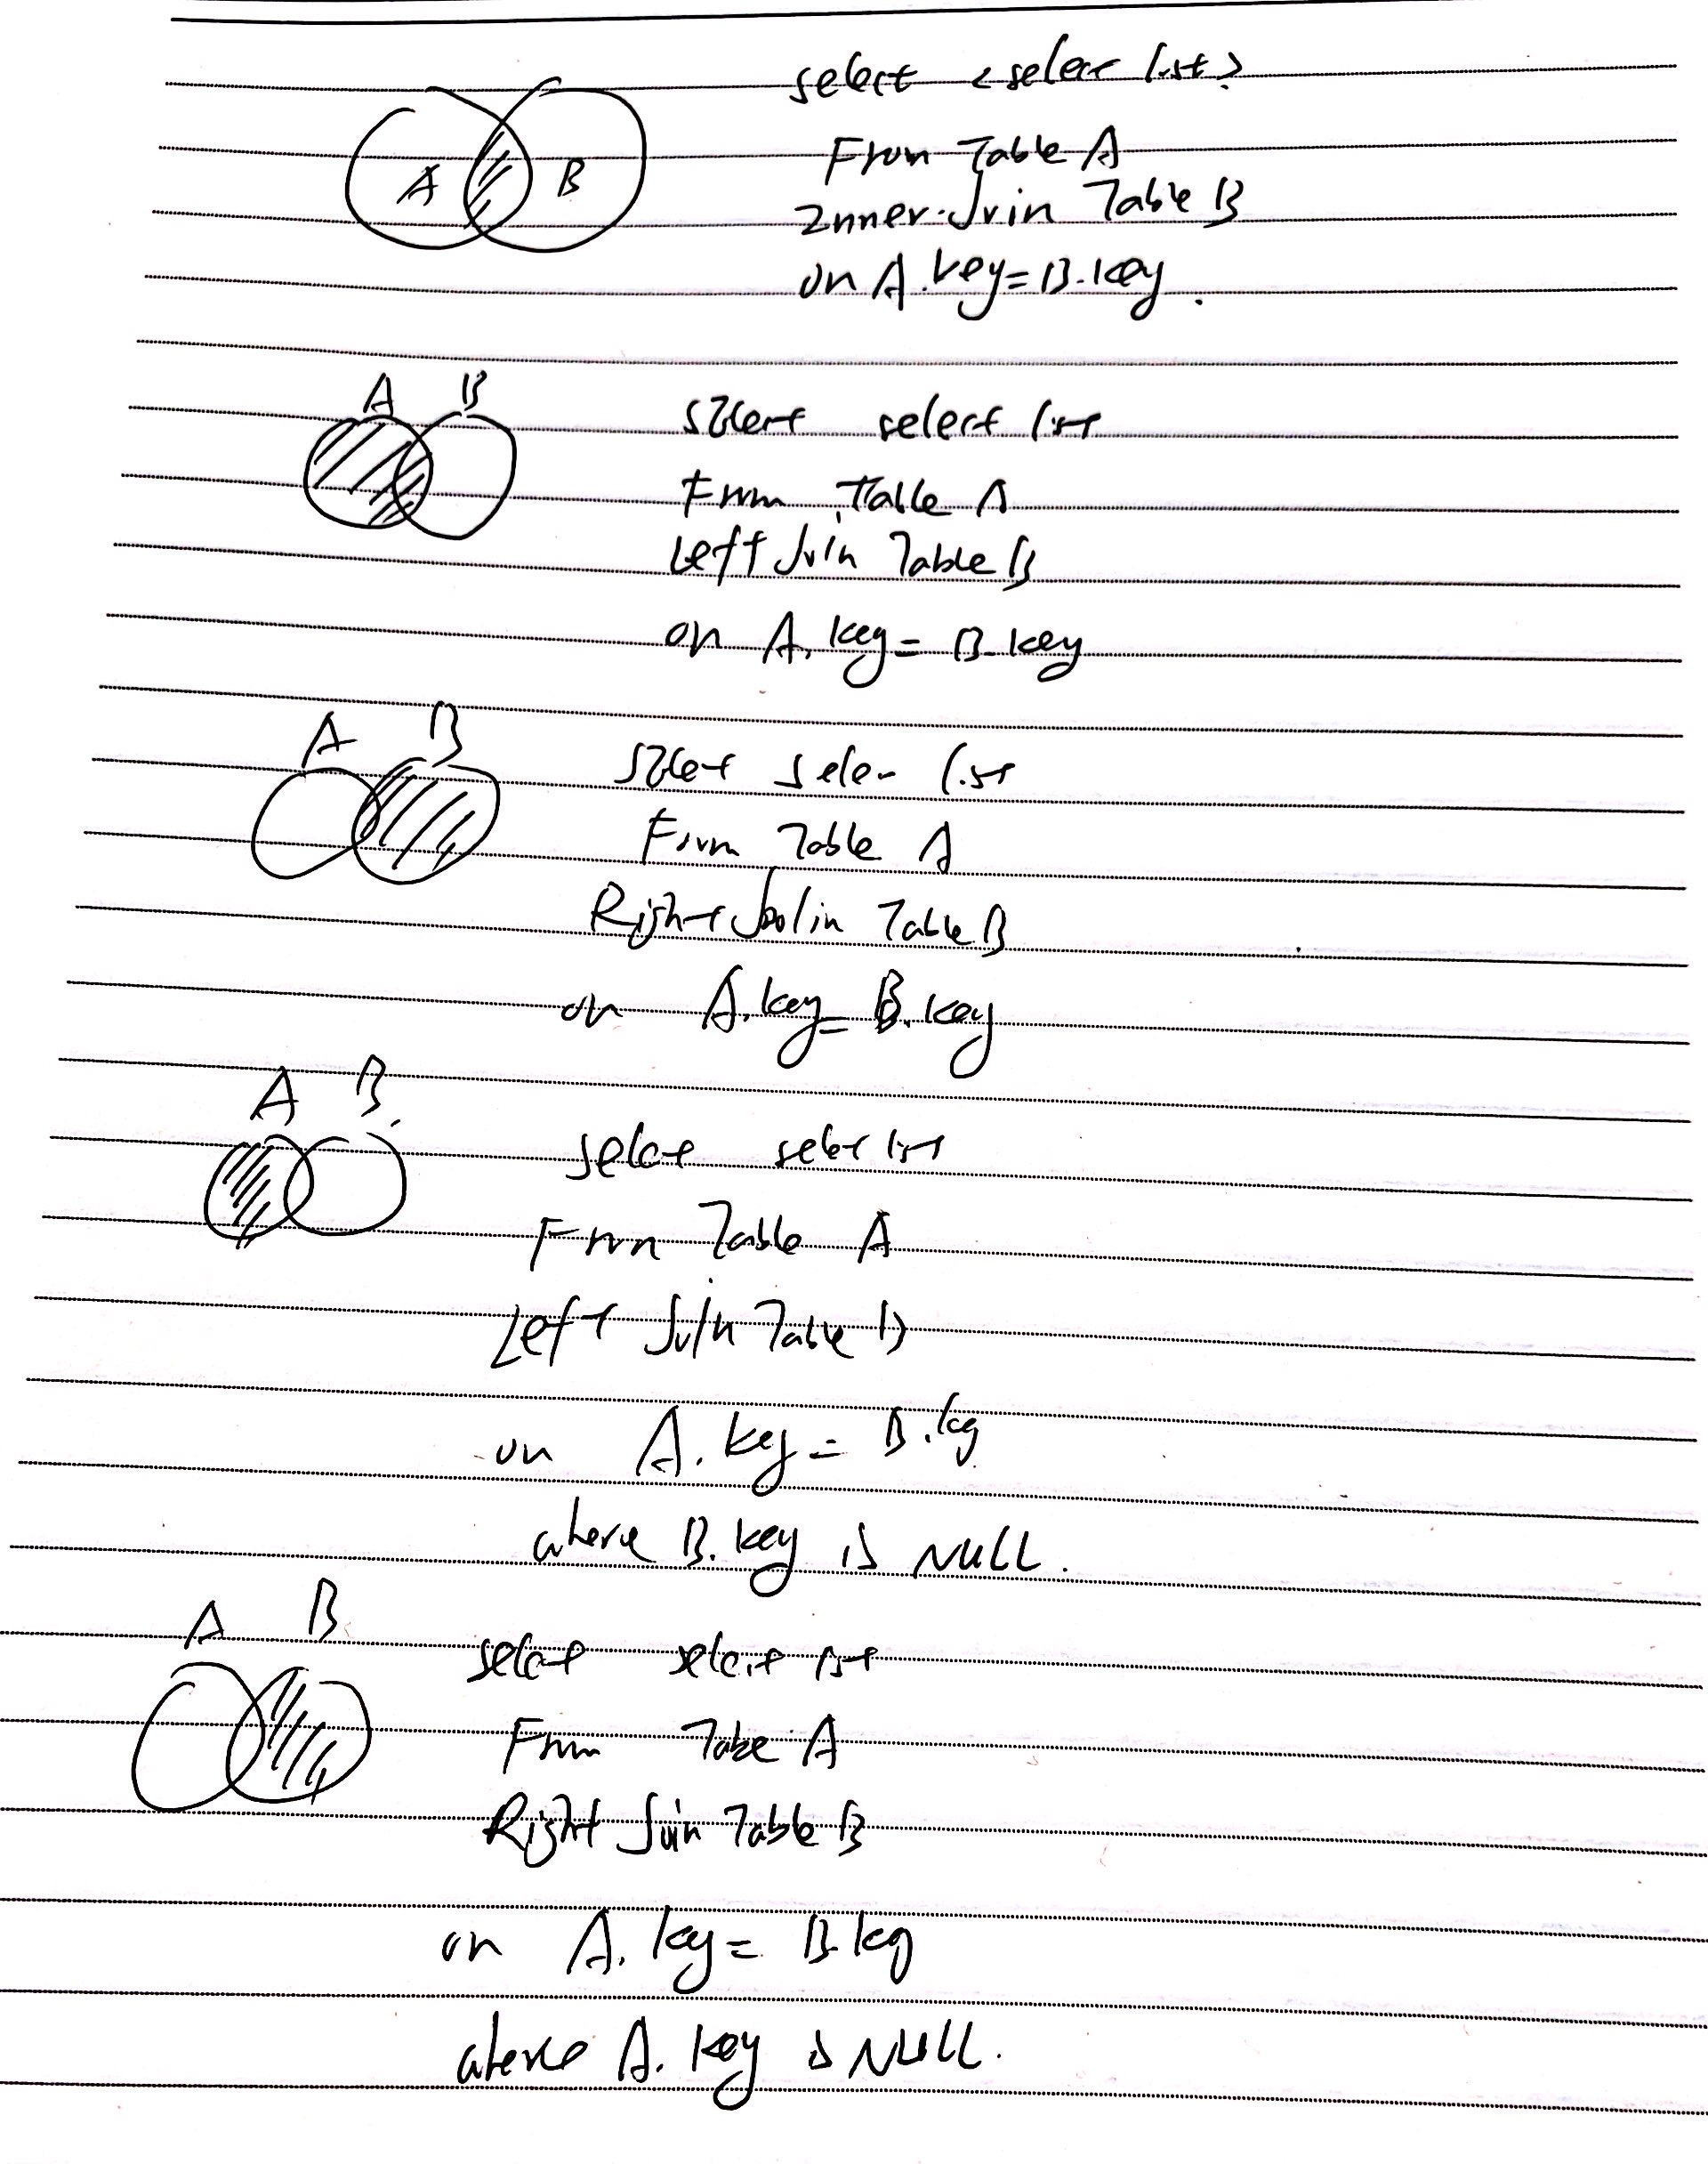 A B
select <select list>
From Table A
Inner Join Table B
on A.key=B.key.
A B
select select list
From Table A
Left Join Table B
on A.key=B.key
A B
select selec list
From Table A
Right Join Table B
on A.key=B.key
A B
select select list
From Table A
Left Join Table B
on A.key=B.key
where B.key is NULL.
A B
select select list
From Table A
Right Join Table B
on A.key=B.key
where A.key is NULL.